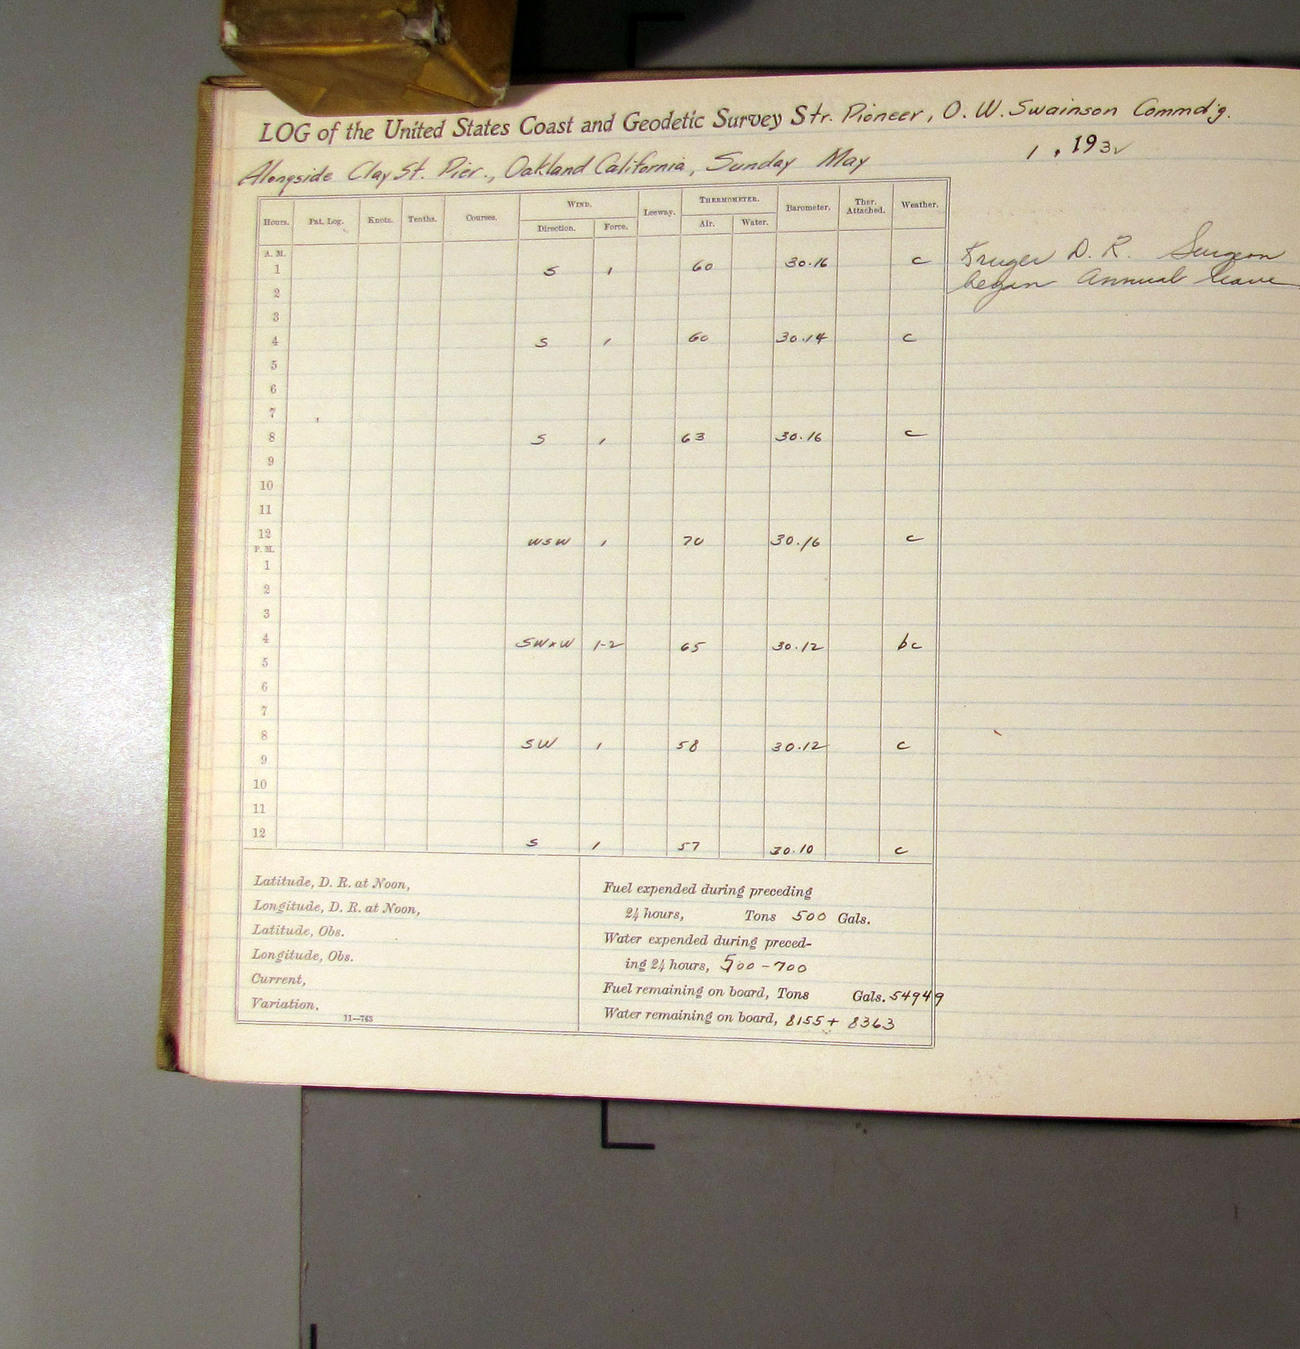 LOG of the United States Coast and Geodetic Survey Str. Pioneer, O. W. Swainson Commd'g.
Alongside Clay St. Pier., Oakland California, Sunday May 1, 1932
Hours. Pat. Log. Knots. Tenths. Courses. WIND. Leeway. THERMOMETER. Barometer. Ther. Attached. Weather.
Direction. Force. Air. Water.
A. M.
1 S 1 60 30.16 c Kruger D. R. Surgeon
2 began Annual leave
3
4 S 1 60 30.14 c
5
6
7
8 S 1 63 30.16 c
9
10
11
12 WSW 1 70 30.16 c
P. M.
1
2
3
4 SWxW 1-2 65 30.12 bc
5
6
7
8 SW 1 58 30.12 c
9
10
11
12 S 1 57 30.10 c
Latitude, D. R. at Noon,
Longitude, D. R. at Noon,
Latitude, Obs.
Longitude, Obs.
Current,
Variation,
11—763
Fuel expended during preceding
24 hours, Tons 500 Gals.
Water expended during preced-
ing 24 hours, 500 - 700
Fuel remaining on board, Tons Gals. 54949
Water remaining on board, 8155 + 8363